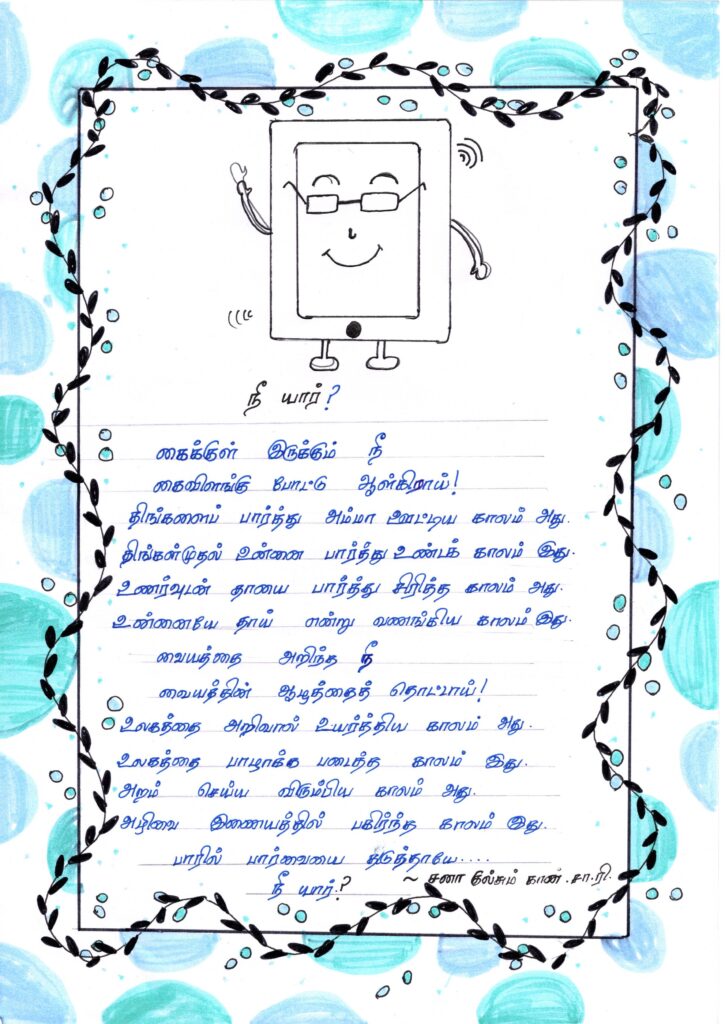 நீ யார்?
கைக்குள் இருக்கும் நீ
கைவிளங்கு போட்டு ஆள்கிறாய்!
திங்களைப் பார்த்து அம்மா ஊட்டிய காலம் அது.
திங்கள்முதல் உன்னை பார்த்து உண்டக் காலம் இது.
உணர்வுடன் தாயை பார்த்து சிரித்த காலம் அது.
உன்னையே தாய் என்று வணங்கிய காலம் இது.
வையத்தை அறிந்த நீ
வையத்தின் ஆழத்தைத் தொட்டாய்!
உலகத்தை அறிவால் உயர்த்திய காலம் அது.
உலகத்தை பாழாக்க படைத்த காலம் இது.
அறம் செய்ய விரும்பிய காலம் அது.
அழிவை இணையத்தில் பகிர்ந்த காலம் இது.
பாரில் பார்வையை தடுத்தாயே....
நீ யார்?
~ சனா கான். சா.ரி.